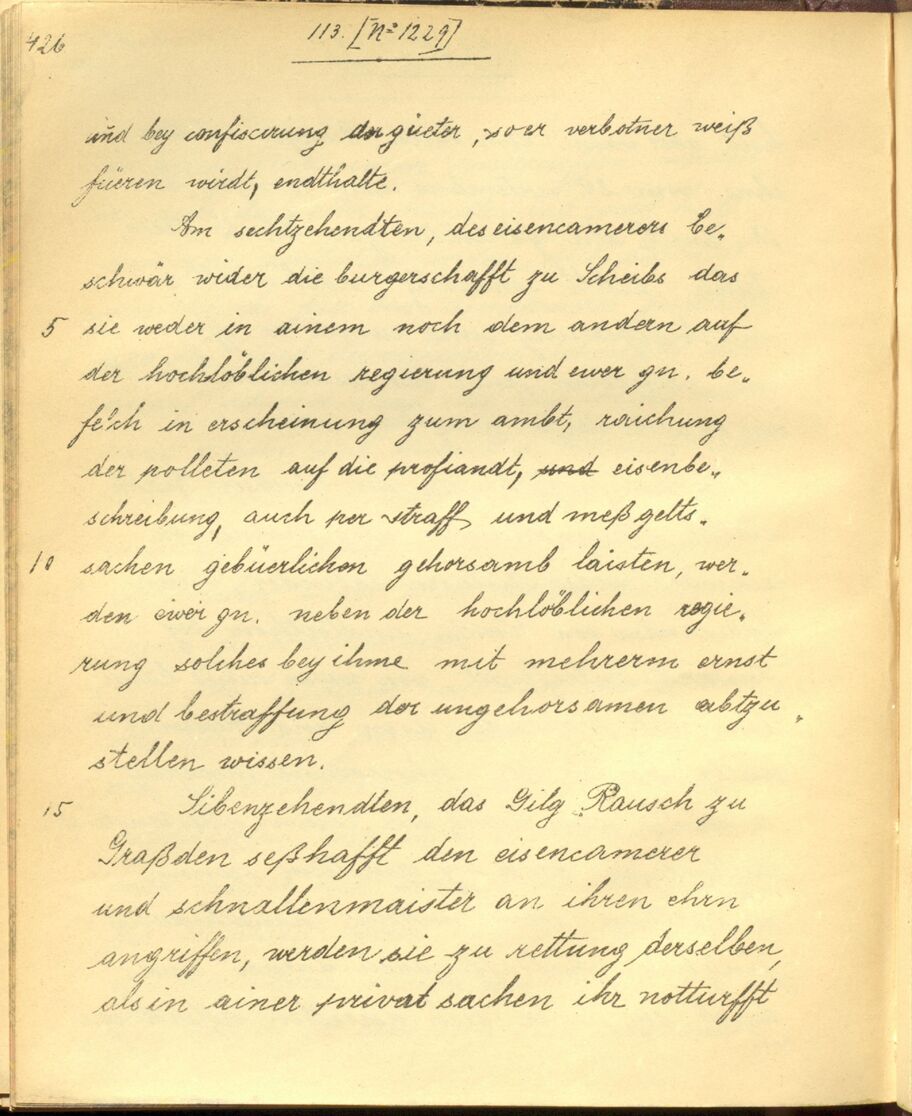 426
113. [Nº 1229]
und bey confiscirung der güeter, so er verbotner weiß
füeren wirdt, endthalte.
Am sechtzehendten, des eisencamerers be„
schwär wider die burgerschafft zu Scheibs das
5 sie weder in ainem noch dem andern auf
der hochlöblichen regierung und ewer gn. be„
felch in erscheinung zum ambt, raichung
der polleten auf die profiandt, und eisenbe„
schreibung, auch per straff und meßgelts„
10 sachen gebüerlichen gehorsamb laisten, wer„
den ewer gn. neben der hochlöblichen regie„
rung solches bey ihme mit mehrerm ernst
und bestraffung der ungehorsamen abtzu„
stellen wissen.
15 Sibenzehendten, das Gilg Rausch zu
Graßden seßhafft den eisencamerer
und schnallenmaister an ihren ehrn
angriffen, werden sie zu rettung derselben,
als in ainer privat sachen ihr notturfft